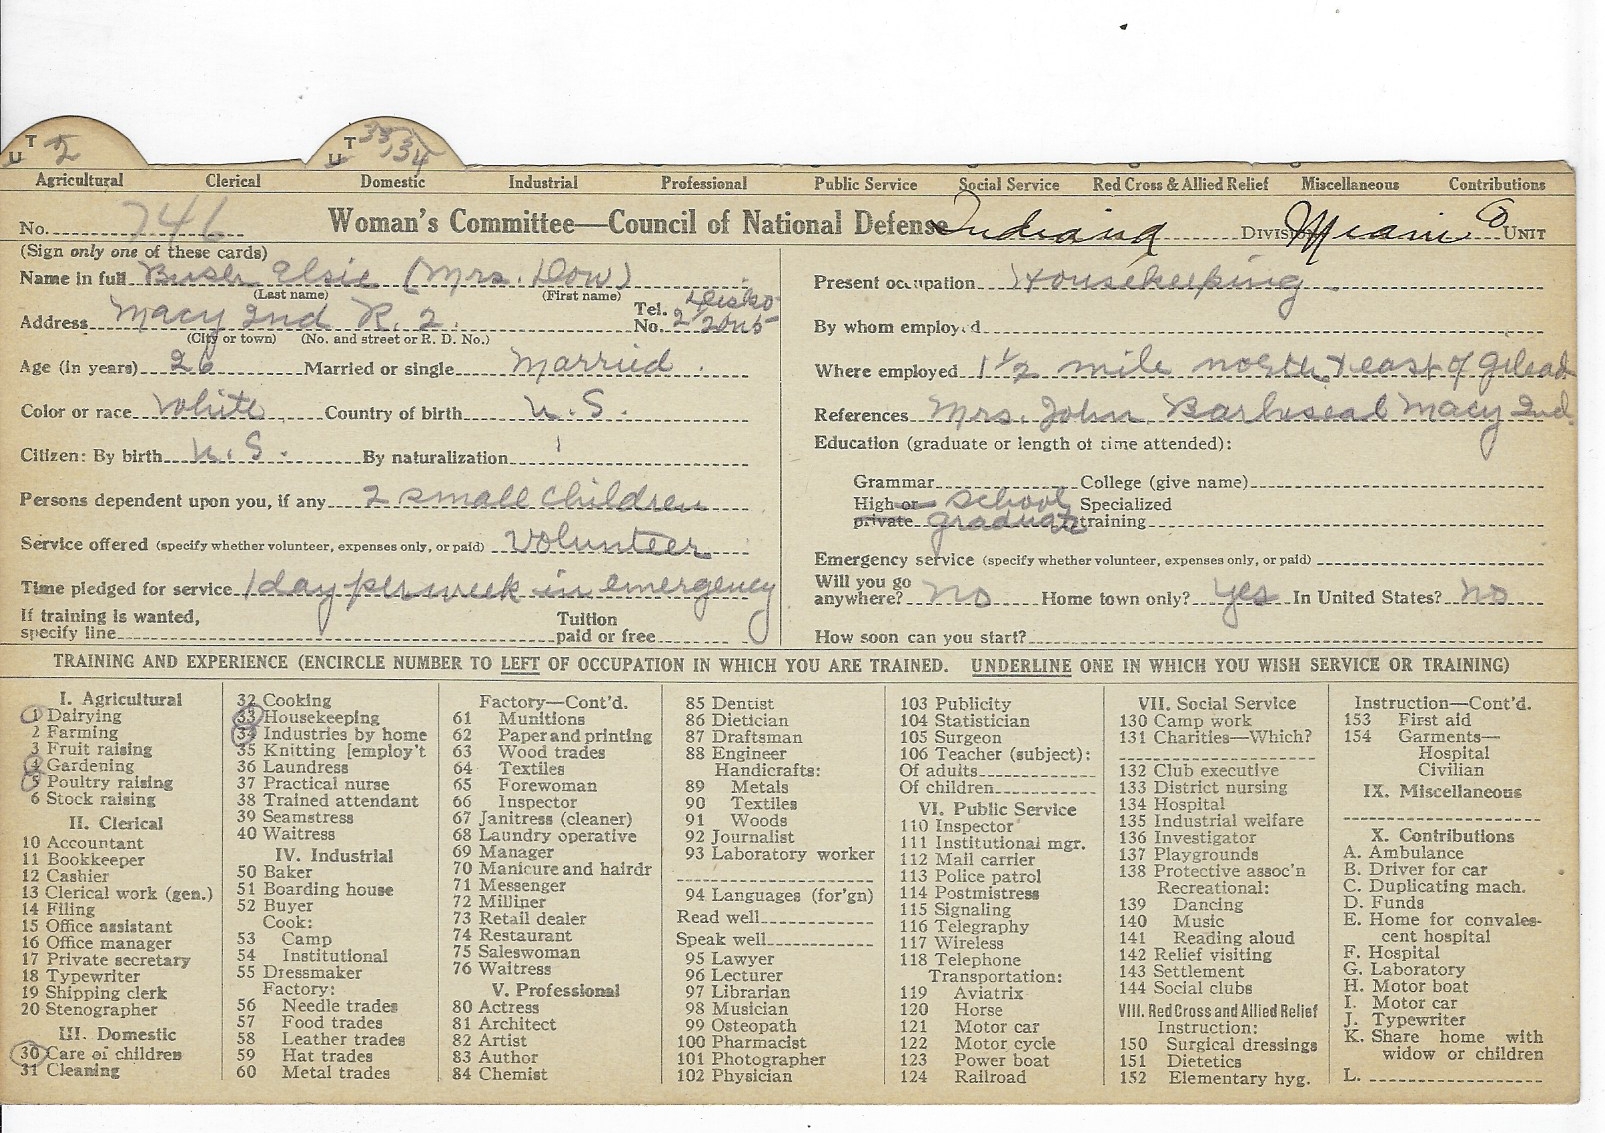 T U 2
T U 33,34
Agricultural Clerical Domestic Industrial Professional Public Service Social Service Red Cross & Allied Relief Miscellaneous Contributions
No. 746 Woman's Committee—Council of National Defense Indiana DIVISION Miami Co UNIT
(Sign only one of these cards)
Name in full Bush Elsie (Mrs. Dow)
(Last name) (First name)
Address Macy Ind R. 2. Tel. No.
(City or town) (No. and street or R. D. No.)
Age (in years) 26 Married or single Married.
Color or race White Country of birth U.S.
Citizen: By birth U.S. By naturalization
Persons dependent upon you, if any 2 small children
Service offered (specify whether volunteer, expenses only, or paid) Volunteer
Time pledged for service 1 day per week in emergency
If training is wanted,
specify line Tuition paid or free
Present occupation Housekeeping.
By whom employed
Where employed 1 1/2 mile north & east of Gilead
References Mrs. John Macy Ind.
Education (graduate or length of time attended):
Grammar College (give name)
High or private school graduate Specialized training
Emergency service (specify whether volunteer, expenses only, or paid)
Will you go anywhere? no Home town only? Yes In United States? no
How soon can you start?
TRAINING AND EXPERIENCE (ENCIRCLE NUMBER TO LEFT OF OCCUPATION IN WHICH YOU ARE TRAINED. UNDERLINE ONE IN WHICH YOU WISH SERVICE OR TRAINING)
I. Agricultural
1 Dairying
2 Farming
3 Fruit raising
4 Gardening
5 Poultry raising
6 Stock raising
II. Clerical
10 Accountant
11 Bookkeeper
12 Cashier
13 Clerical work (gen.)
14 Filing
15 Office assistant
16 Office manager
17 Private secretary
18 Typewriter
19 Shipping clerk
20 Stenographer
III. Domestic
30 Care of children
31 Cleaning
32 Cooking
33 Housekeeping
34 Industries by home
35 Knitting [employ't
36 Laundress
37 Practical nurse
38 Trained attendant
39 Seamstress
40 Waitress
IV. Industrial
50 Baker
51 Boarding house
52 Buyer
Cook:
53 Camp
54 Institutional
55 Dressmaker
Factory:
56 Needle trades
57 Food trades
58 Leather trades
59 Hat trades
60 Metal trades
Factory—Cont'd.
61 Munitions
62 Paper and printing
63 Wood trades
64 Textiles
65 Forewoman
66 Inspector
67 Janitress (cleaner)
68 Laundry operative
69 Manager
70 Manicure and hairdr
71 Messenger
72 Milliner
73 Retail dealer
74 Restaurant
75 Saleswoman
76 Waitress
V. Professional
80 Actress
81 Architect
82 Artist
83 Author
84 Chemist
85 Dentist
86 Dietician
87 Draftsman
88 Engineer
Handicrafts:
89 Metals
90 Textiles
91 Woods
92 Journalist
93 Laboratory worker
94 Languages (for'gn)
Read well
Speak well
95 Lawyer
96 Lecturer
97 Librarian
98 Musician
99 Osteopath
100 Pharmacist
101 Photographer
102 Physician
103 Publicity
104 Statistician
105 Surgeon
106 Teacher (subject):
Of adults
Of children
VI. Public Service
110 Inspector
111 Institutional mgr.
112 Mail carrier
113 Police patrol
114 Postmistress
115 Signaling
116 Telegraphy
117 Wireless
118 Telephone
Transportation:
119 Aviatrix
120 Horse
121 Motor car
122 Motor cycle
123 Power boat
124 Railroad
VII. Social Service
130 Camp work
131 Charities—Which?
132 Club executive
133 District nursing
134 Hospital
135 Industrial welfare
136 Investigator
137 Playgrounds
138 Protective assoc'n
Recreational:
139 Dancing
140 Music
141 Reading aloud
142 Relief visiting
143 Settlement
144 Social clubs
VIII. Red Cross and Allied Relief
Instruction:
150 Surgical dressings
151 Dietetics
152 Elementary hyg.
Instruction—Cont'd.
153 First aid
154 Garments—
Hospital
Civilian
IX. Miscellaneous
X. Contributions
A. Ambulance
B. Driver for car
C. Duplicating mach.
D. Funds
E. Home for convales-
cent hospital
F. Hospital
G. Laboratory
H. Motor boat
I. Motor car
J. Typewriter
K. Share home with
widow or children
L.